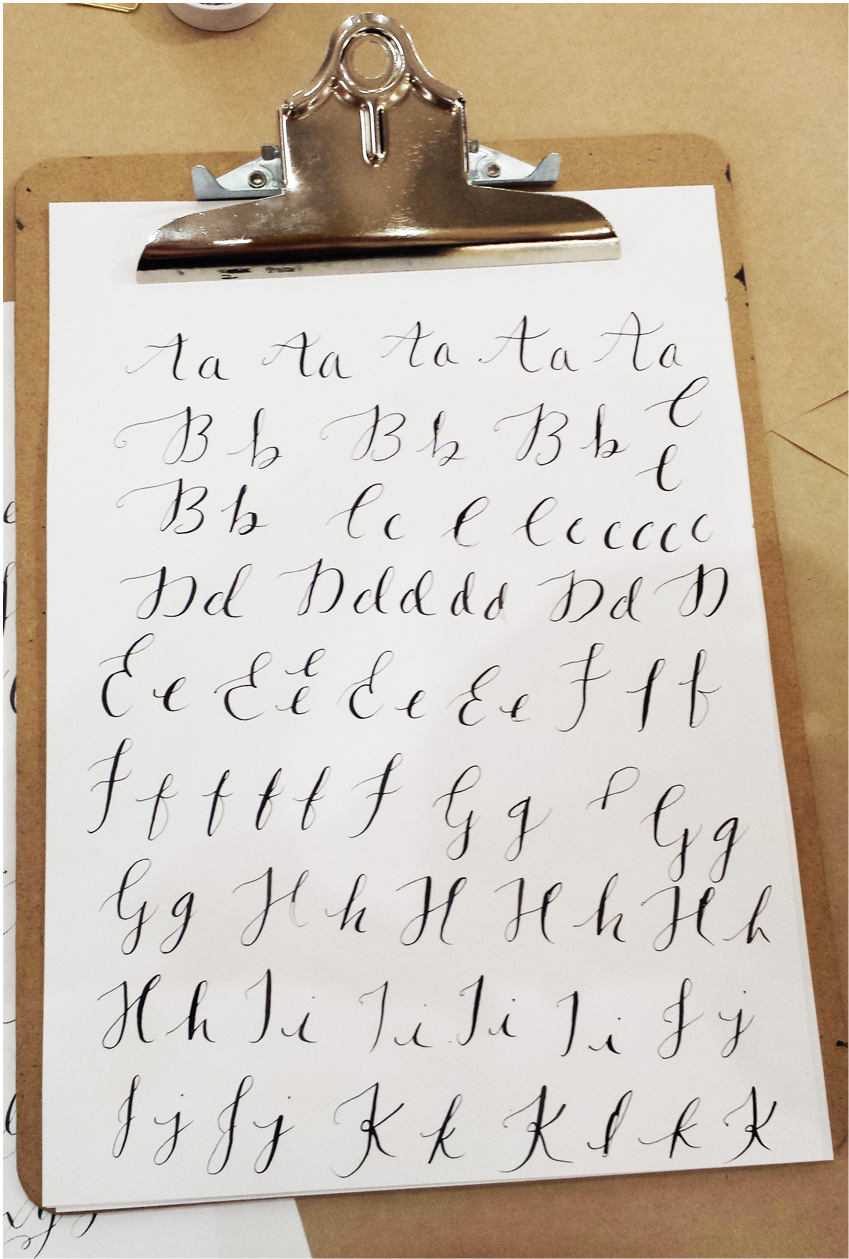 Aa Aa Aa Aa Aa
Bb Bb Bb C
C
Bb Cc C Cccccc
Dd Ddddd Dd D
Ee Ee e Ee Ee F f f
F f f f f F G g Gg
Gg H h H H h H h
H h I i I i I i I i J j
J j J j K k K k K